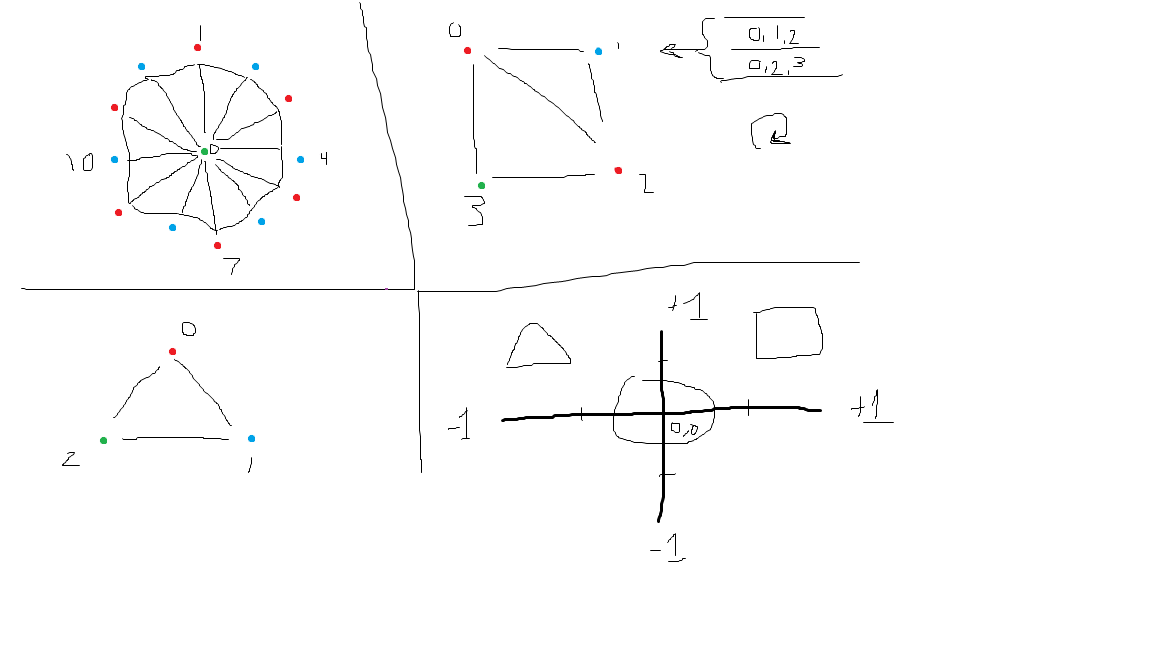 1
0
10
4
7
0
1
0,1,2
0,2,3
2
3
0
2
1
+1
-1
+1
0,0
-1